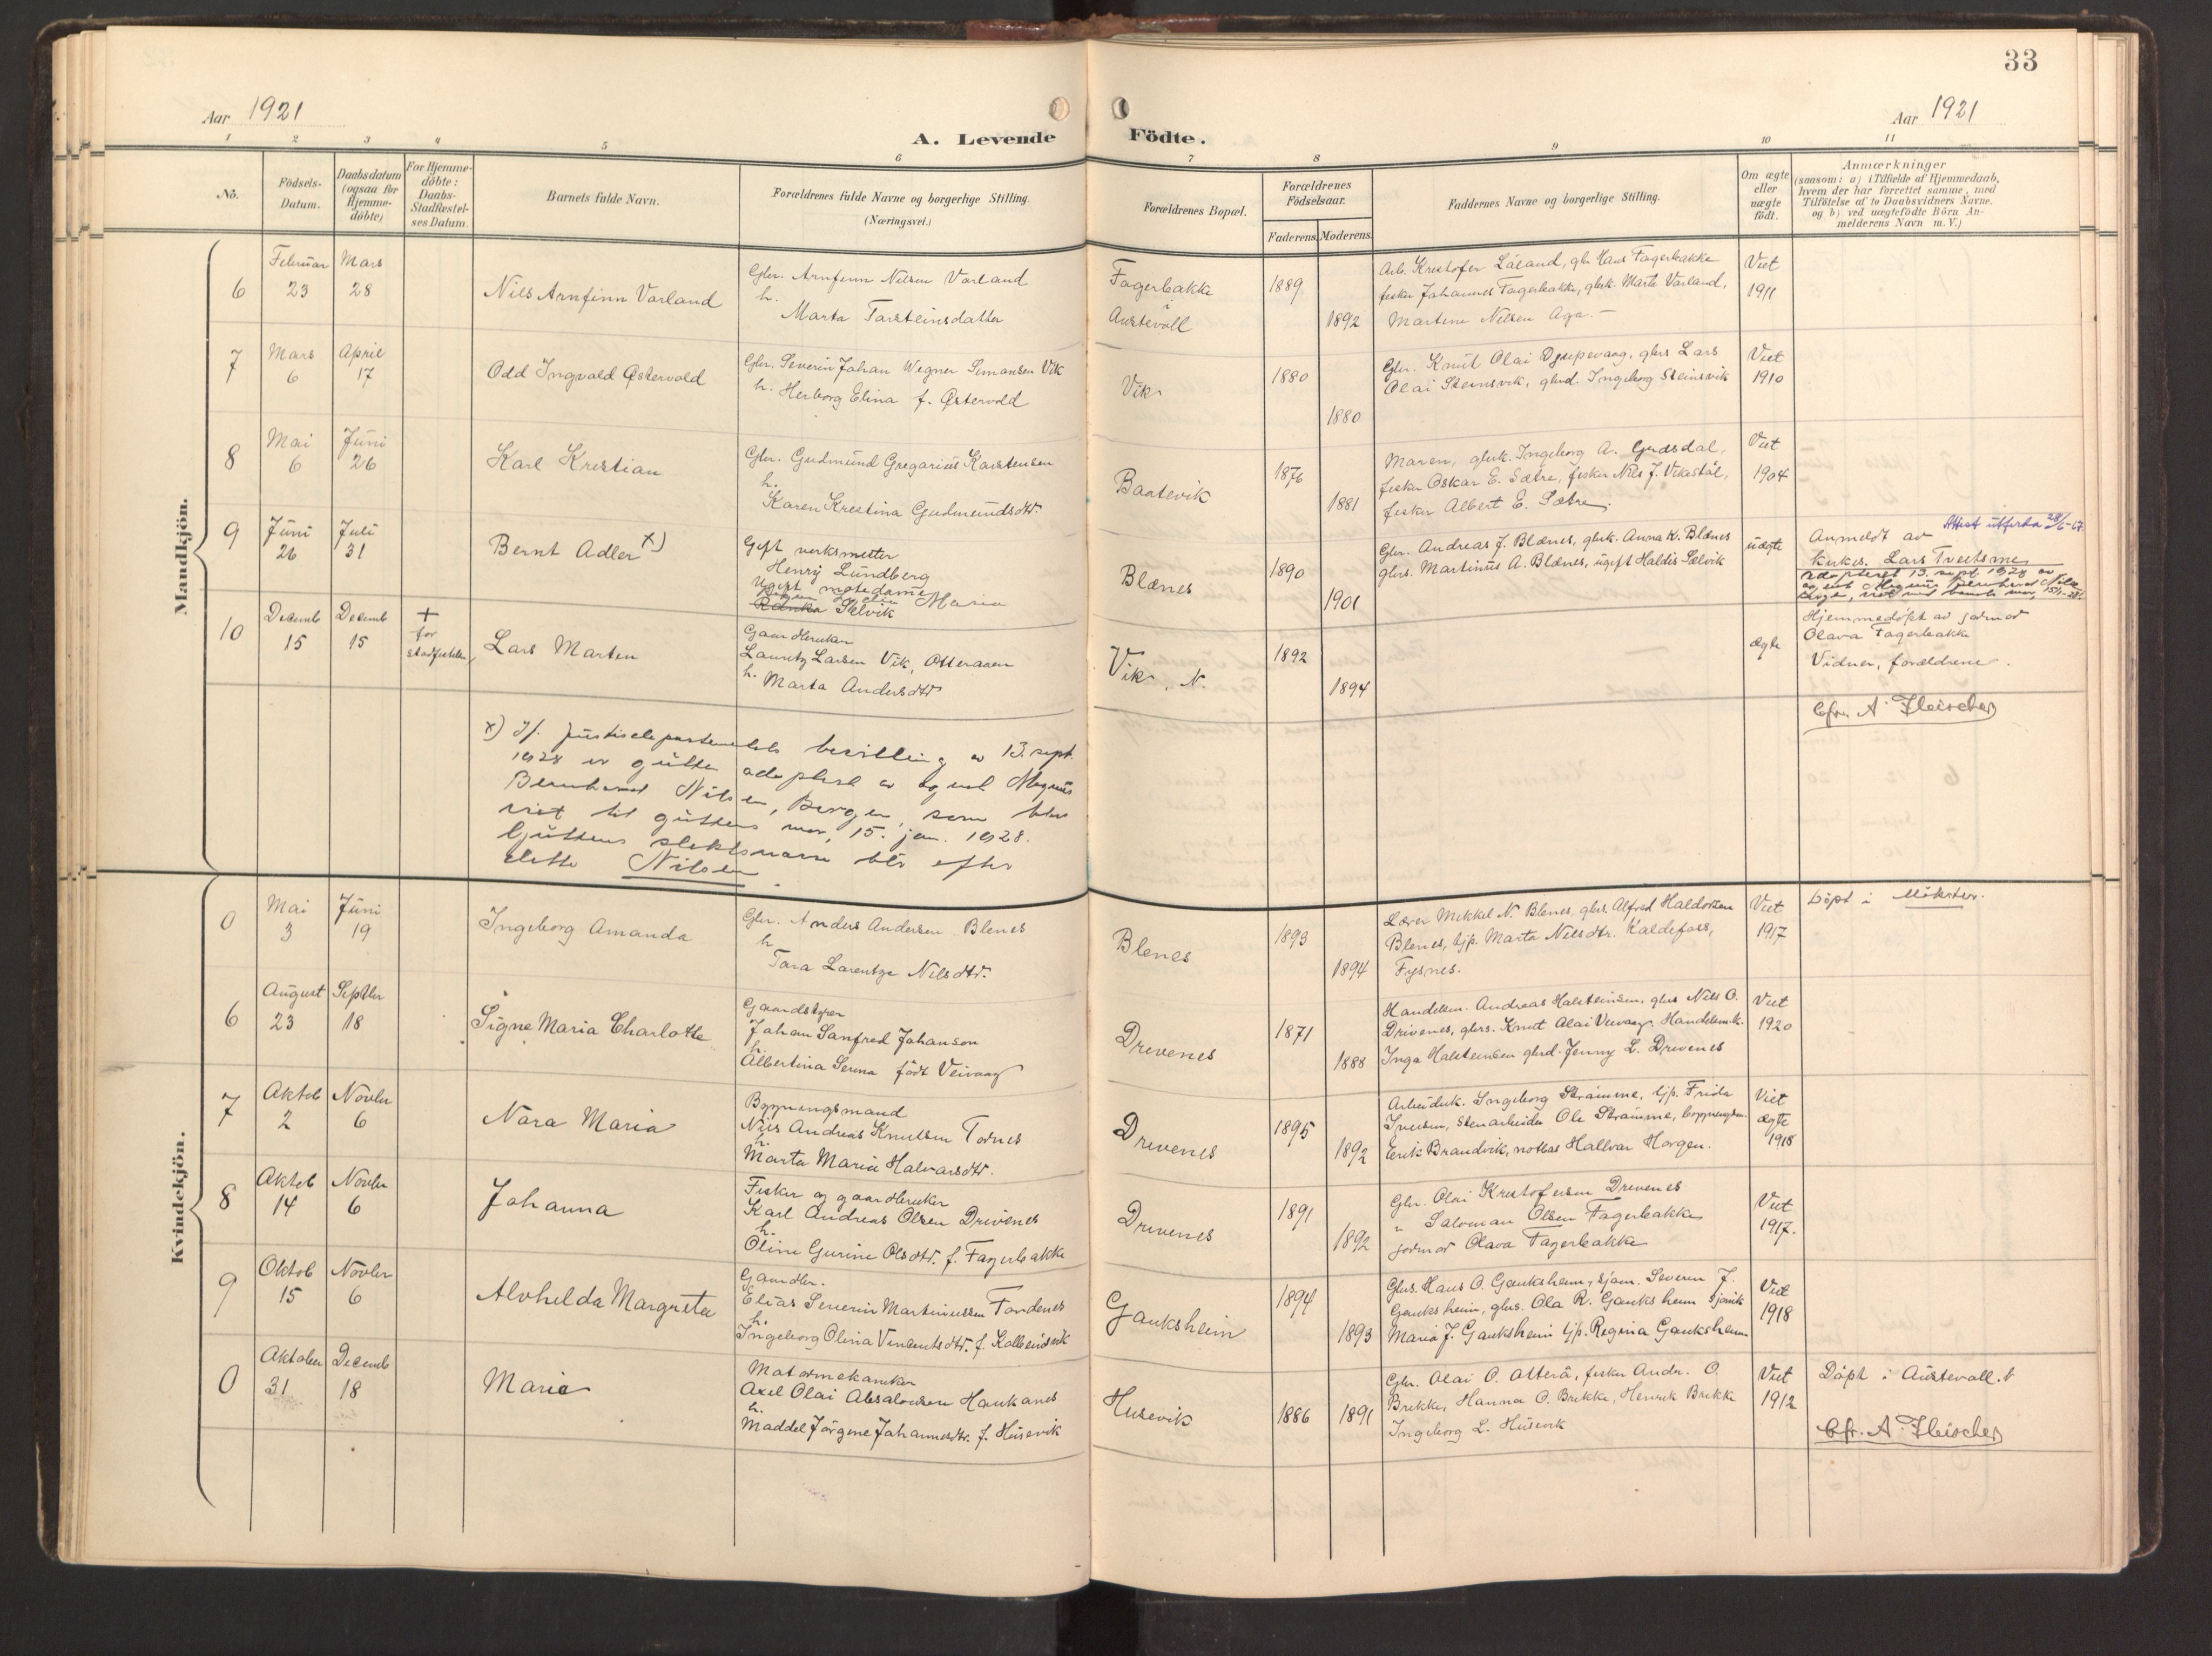 33
Aar 1921
Aar 1921
A. Levende Födte.
1 2 3 4 5 6 7 8 9 10 11
No.
Födsels-
Datum.
Daabsdatum
(ogsaa for
Hjemme-
döbte)
For Hjemme-
döbte:
Daabs-
Stadfæstel-
ses Datum.
Barnets fulde Navn.
Forældrenes fulde Navne og borgerlige Stilling.
(Næringsvei.)
Forældrenes Bopæl.
Forældrenes
Födselsaar.
Faderens. Moderens.
Faddernes Navne og borgerlige Stilling.
Om ægte
eller
uægte
födt.
Anmærkninger
(saasom: a) i Tilfælde af Hjemmedaab,
hvem der har forrettet samme, med
Tilföielse af to Daabsvidners Navne.
og b) ved uægtefödte Börn An-
melderens Navn m.V.)
Mandkjön.
6
Februar 23
Mars 28
Nils Arnfinn Varland
Gbr. Arnfinn Nilsen Varland
h.
Marta Torsteinsdatter
Fagerbakke
i
Austevoll
1889
1892
Arb. Kristofer Låsand, gbr. Hans Fagerbakke
fisker Johannes Fagerbakke, gbrk. Marte Varland,
Martine Nilsen Aga. -
Viet
1911
7
Mars 6
April 17
Odd Ingvald Østervold
Gbr. Severin Johan Wegner Simonsen Vik
h. Herborg Elina f. Østervold
Vik
1880
1880
Gbr. Knut Olai Djupevaag, gbrs Lars
Olai Steinsvik, gbrd. Ingeborg Steinsvik
Viet
1910
8
Mai 6
Juni 26
Karl Kristian
Gbr. Gudmund Gregarius Karstensen
h.
Karen Kristina Gudmundsdtr.
Baatevik
1876
1881
Maren, gbrk. Ingeborg A. Gudsdal,
fisker Oskar E. Sætre, fisker Nils J. Vikastøl,
fisker Albert E. Sætre.
Viet
1904
9
Juni 26
Juli 31
Bernt Adler x)
Gift verksmester
Henry Lundberg
Ugift motedame
Maria
Selvik
Blænes
1890
1901
Gbr. Andreas J. Blænes, gbrk. Anna K. Blænes
gbrs. Martinus A. Blænes, ugift Haldis Selvik
uægte
Attest utferda 28/6-67.
Anmeldt av
kirkes. Lars Tveitsme
adopteret 13. sept. 1928 av
10
Decemb 15
Decemb 15
+
før
stadfestelsen
Lars Marten
Gaardbruker
Lauritz Larsen Vik, Otteraaen
h. Marta Andersdtr
Vik, N.
1892
1894
ægte
Hjemmedøpt av jordmor
Olava Fagerbakke
Vidner, forældrene.
Cfr. A. Fleischer
x) If. Justisdepartementets bevilling av 13. sept.
1928 er gutten adoptert av agent Magnus
Bernhard Nilsen, Bergen, som blev
viet til guttens mor, 15. jan. 1928.
Guttens slektsnavn blir efter
dette Nilsen.
Kvindekjön.
0
Mai 3
Juni 19
Ingeborg Amanda
Gbr. Anders Andersen Blenes
h
Tara Larentze Nilsdtr.
Blenes
1893
1894
Lærer Mikkel N. Blenes, gbrs. Alfred Haldorsen
Blenes, tjp. Marta Nilsdtr. Kaldefoss,
Fysnes.
Viet
1917
Døpt i Møkster.
6
August 23
Septbr 18
Signe Maria Charlotte
Gaardstyrer
Johan Sanfred Johanson
h.
Albertina Serina født Veivaag
Drevenes
1871
1888
Handelsm. Andreas Halsteinsen, gbrs Nils O.
Drivenes, gbrs. Knut Olai Veivaag, Handelsmk.
Inga Halsteinsen gbrd. Jenny L. Drivenes
Viet
1920
7
Aktob 2
Novbr 6
Nora Maria
Bygningsmand
Nils Andreas Knutsen Tornes
h.
Marta Maria Halvarsdtr.
Drevenes
1895
1892
Arbeiderk. Ingeborg Strømme, tjp. Frida
Iversen, stenarbeider Ole Strømme, bygningsm.
Erik Brandvik, notbas Hallvar Horgen.
Viet
ægte
1918
8
Aktob 14
Novbr 6
Johanna
Fisker og gaardbruker
Karl Andreas Olsen Drivenes
h.
Oline Gurine Olsdtr. f. Fagerbakke
Drevenes
1891
1892
Gbr. Olai Kristofersen Drivenes
" Saloman Olsen Fagerbakke
jordmor Olava Fagerbakke
Viet
1917.
9
Oktob 15
Novbr 6
Alvhelda Margreta
Gaardbr.
Elias Severin Martinussen Fondenes
h.
Ingeborg Olina Vincentsdtr. f. Kalbeinsvik
Gauksheim
1894
1893
Gbrs. Hans O. Gauksheim, sjøm. Severin J.
Gauksheim, gbrs. Ola R. Gauksheim sjømk
Maria J. Gauksheim tjp. Regina Gauksheim
Viet
1918
0
Aktober 31
Decemb 18
Maria
Motormekaniker
Axel Olai Absalonsen Haukanes
h.
Maddel Jørgine Johannesdtr. f. Husevik
Husevik
1886
1891
Gbr. Olai O. Otterå, fisker Andr. O.
Brekke, Hanna O. Brekke, Henrik Brekke
Ingeborg L. Husevik
Viet
1912
Døpt i Austevoll.
Cfr. A. Fleischer